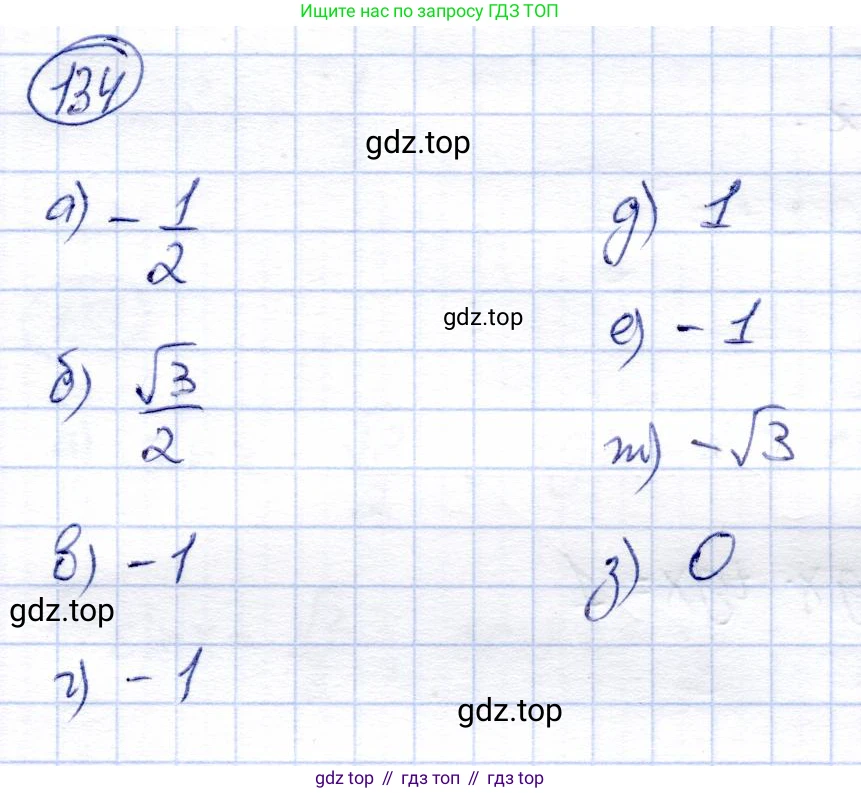 Ищите нас по запросу ГДЗ ТОП
134
gdz.top
а) - 1/2
д) 1
gdz.top
е) - 1
б) √3/2
ж) - √3
в) - 1
з) 0
gdz.top
г) - 1
gdz.top
gdz top // гдз топ // gdz top